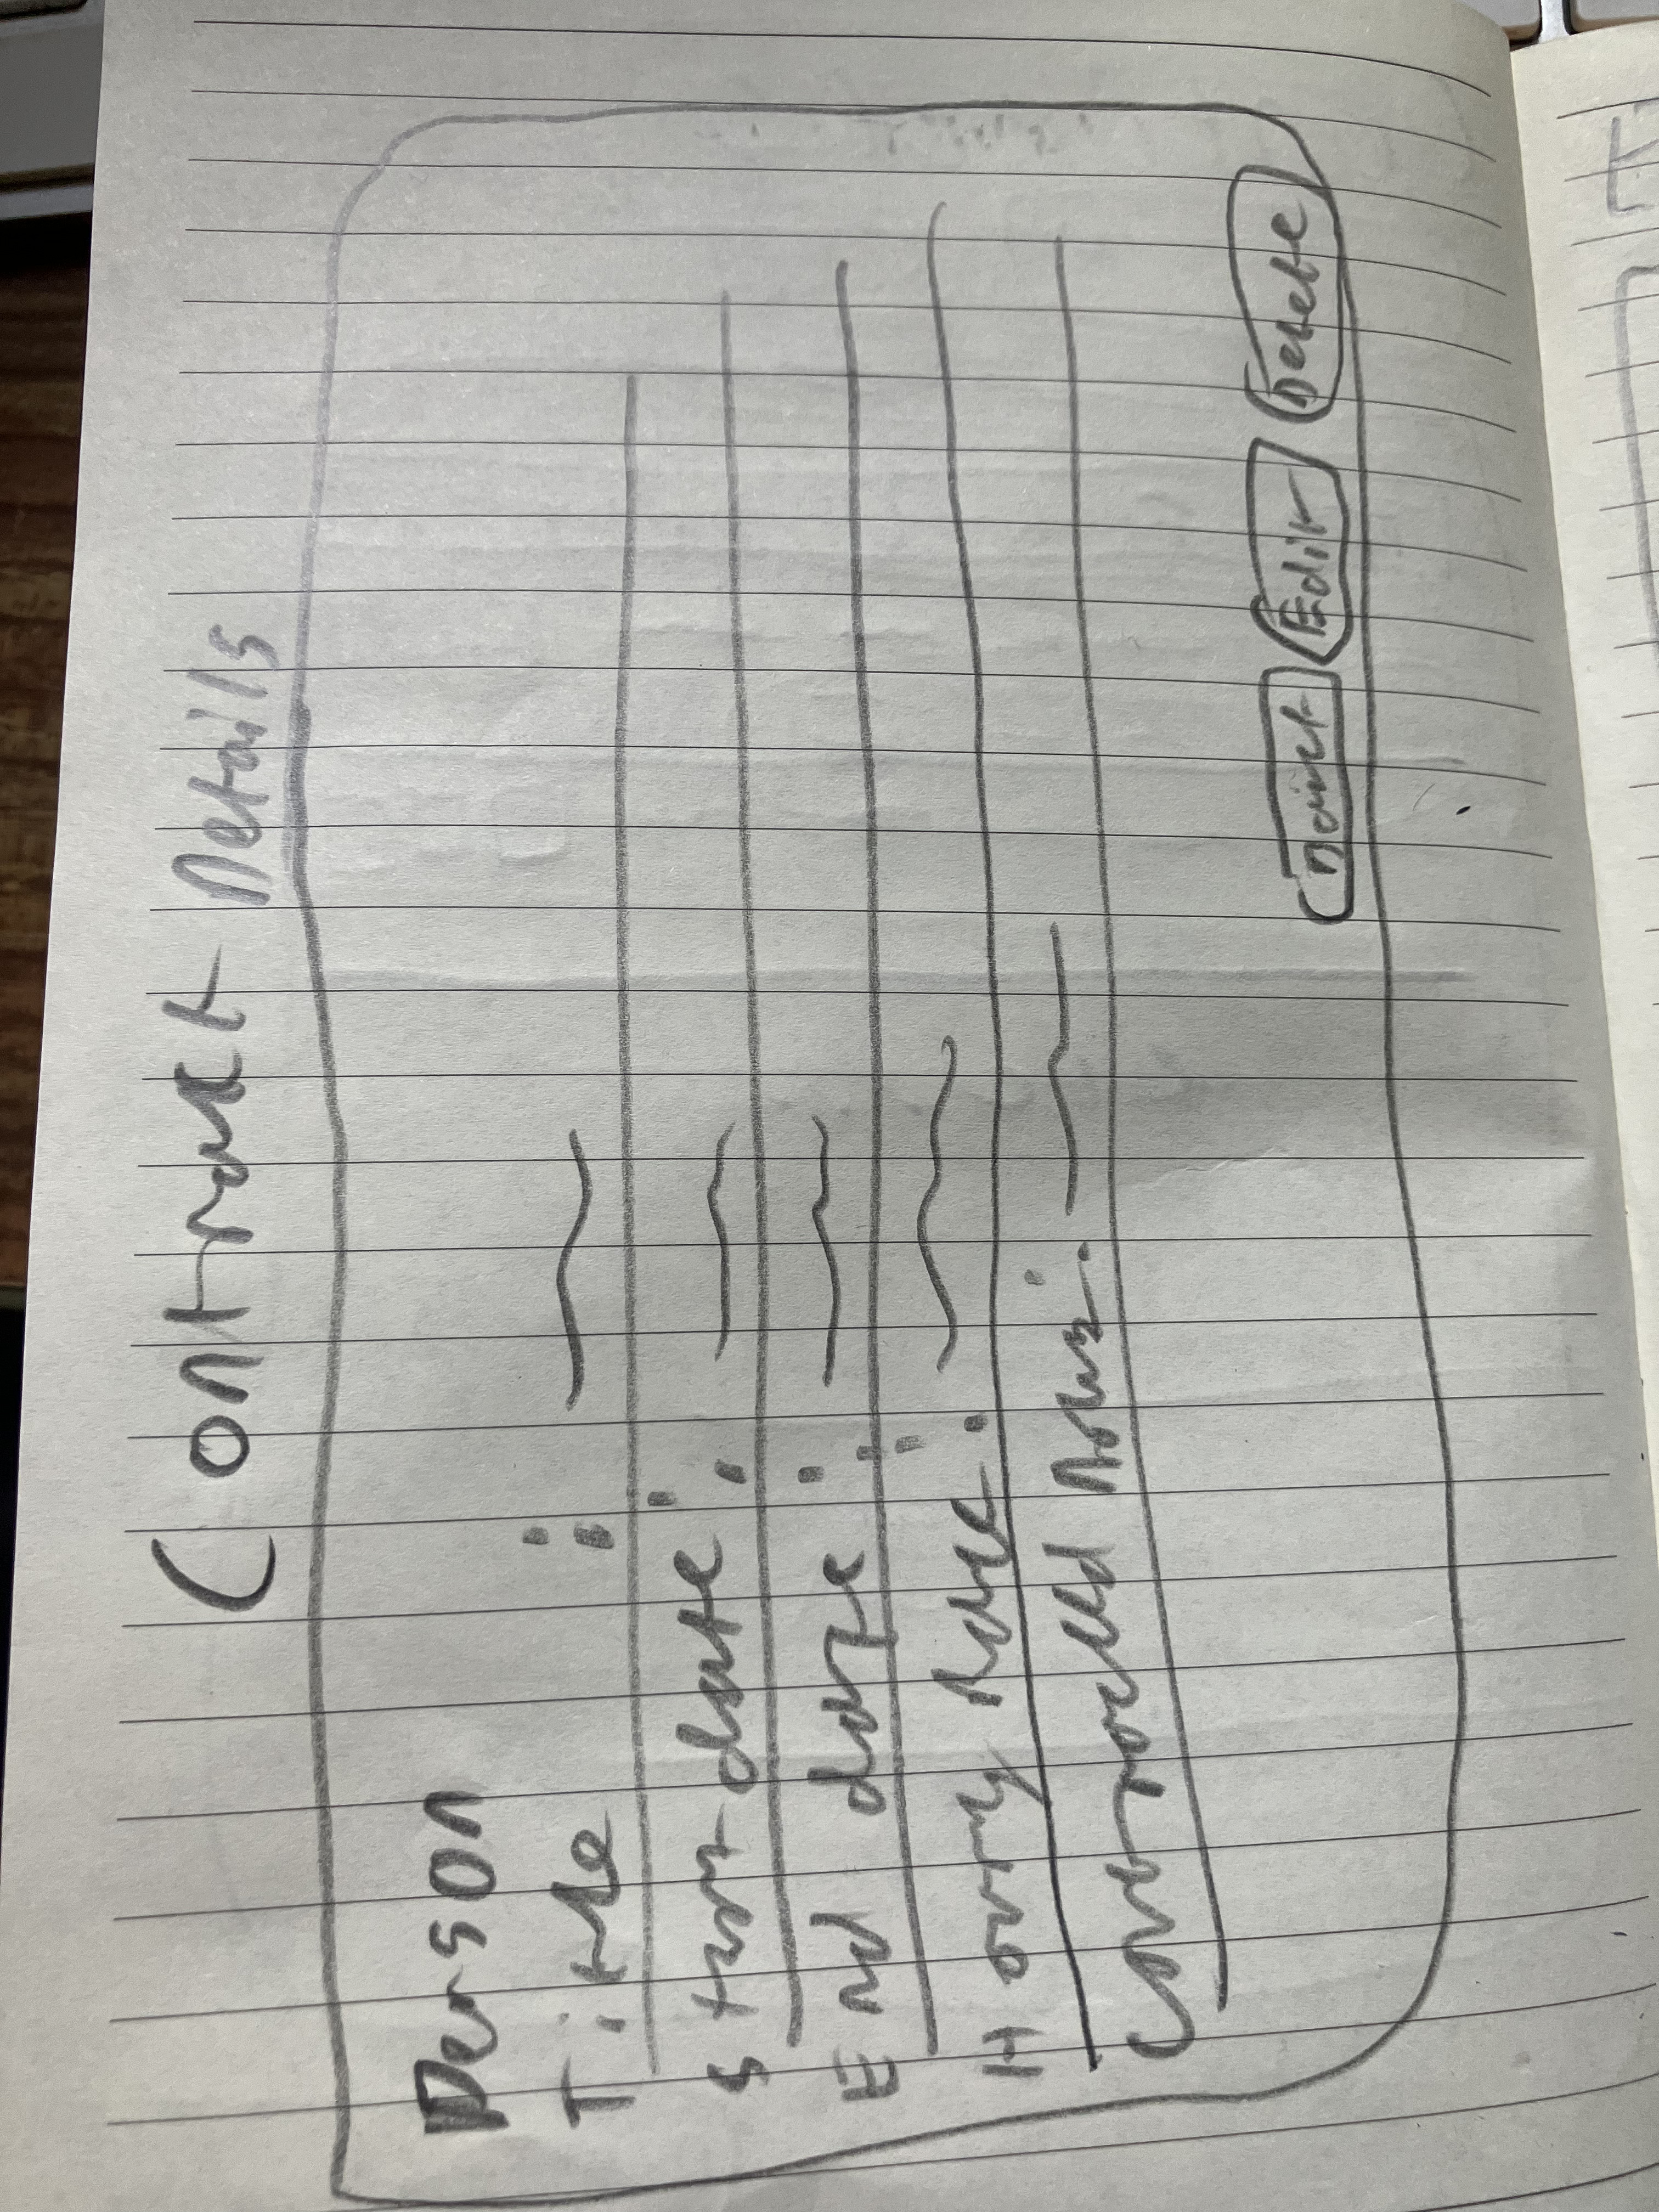 Contract Details
Person
Title :
Start date :
End date :
Hourly Rate :
Contracted Hours :
Edit Delete